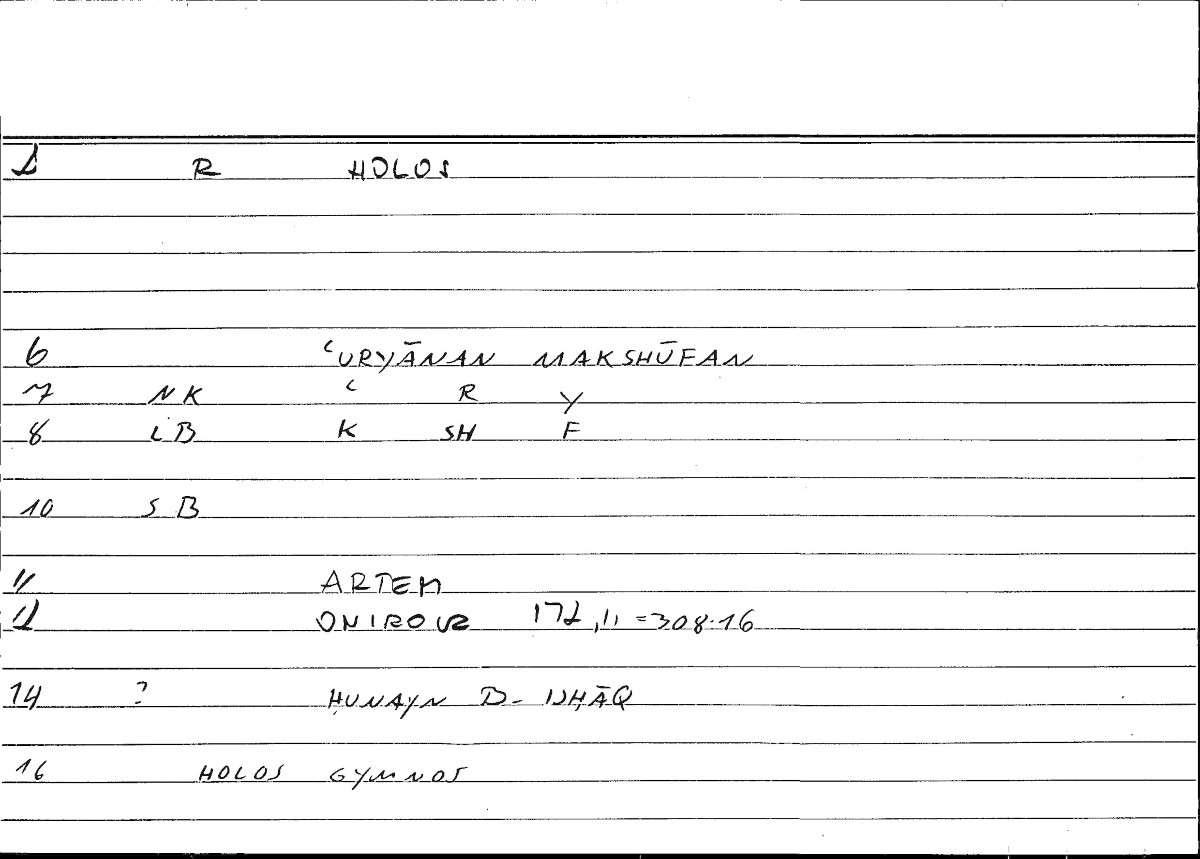 1 R HOLOS
6 ʿURYĀNAN MAKSHŪFAN
7 NK ʿ R Y
8 LB K SH F
10 S B
11 ARTEM
12 ONIROCR 172,11=308.16
14 ? ḤUNAYN B. ISḤĀQ
16 HOLOS GYMNOS